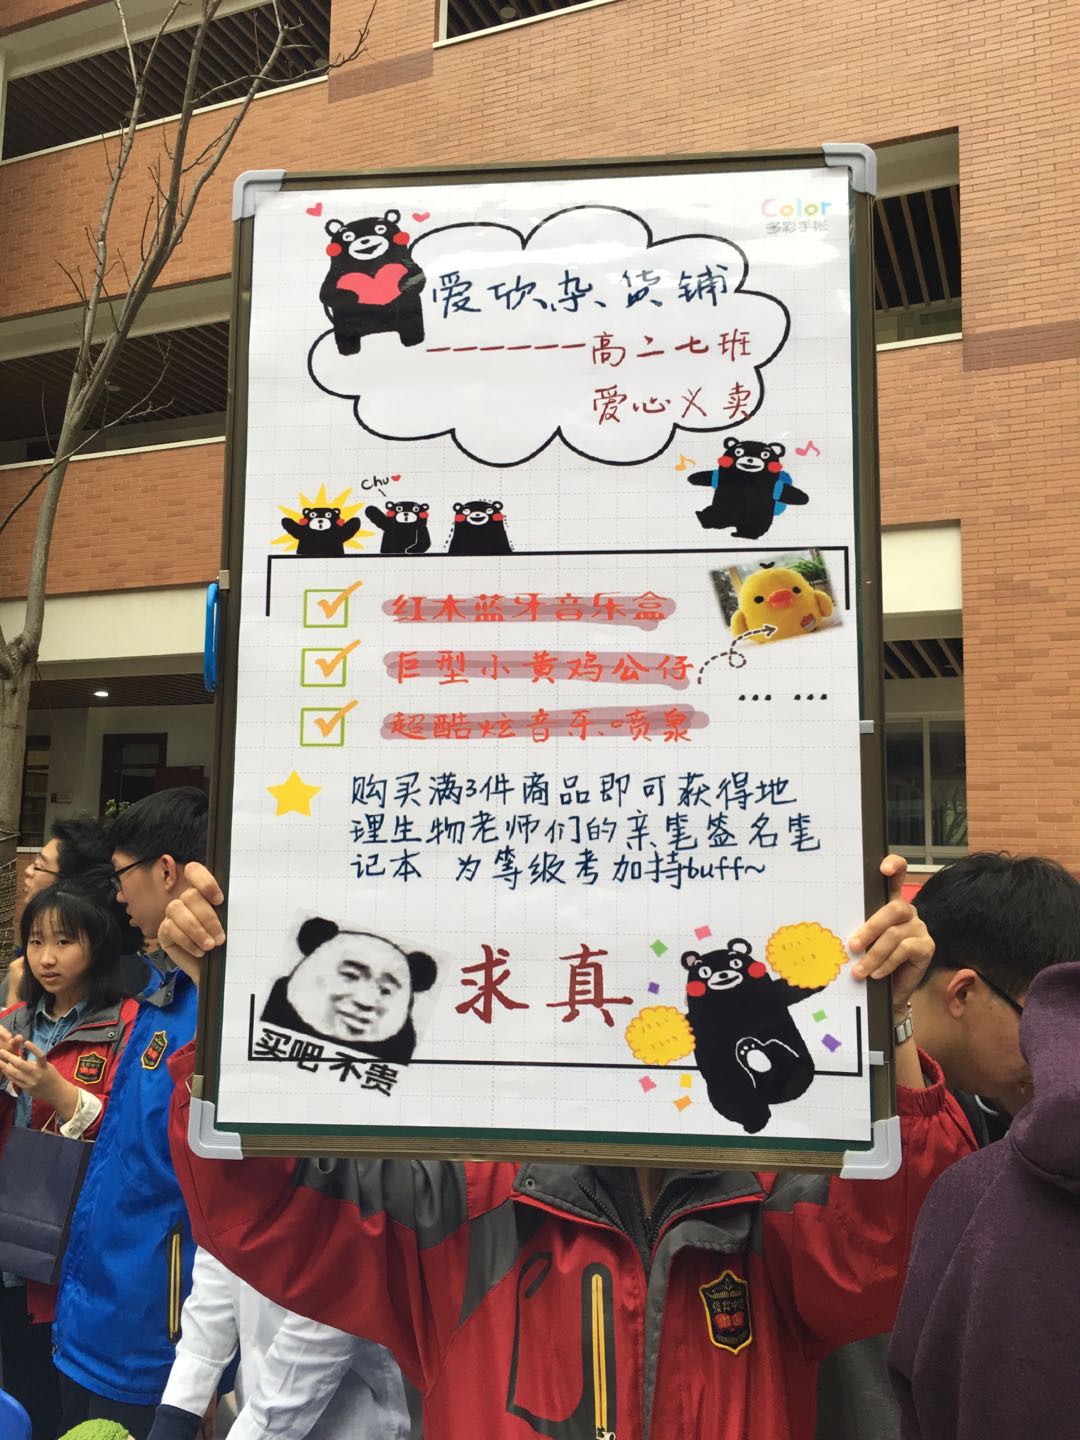 Color
多彩手帐
爱欣杂货铺
——————高二七班
爱心义卖
chu
红木蓝牙音乐盒
巨型小黄鸡公仔
... ...
超酷炫音乐喷泉
购买满3件商品即可获得地
理生物老师们的亲笔签名笔
记本 为等级考加持buff~
求真
买吧 不贵